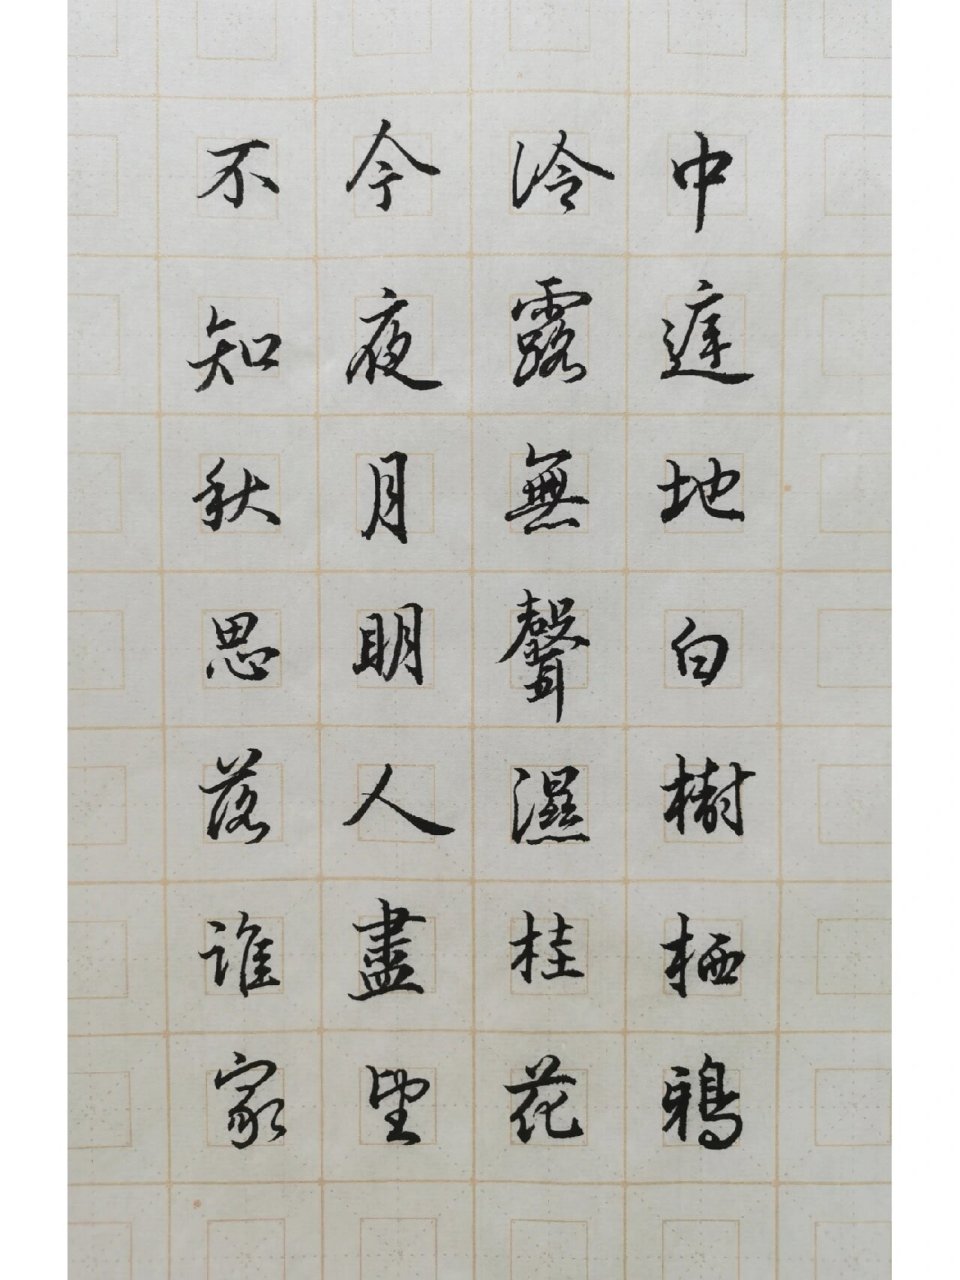 中庭地白樹栖鴉
冷露無聲濕桂花
今夜月明人盡望
不知秋思落誰家